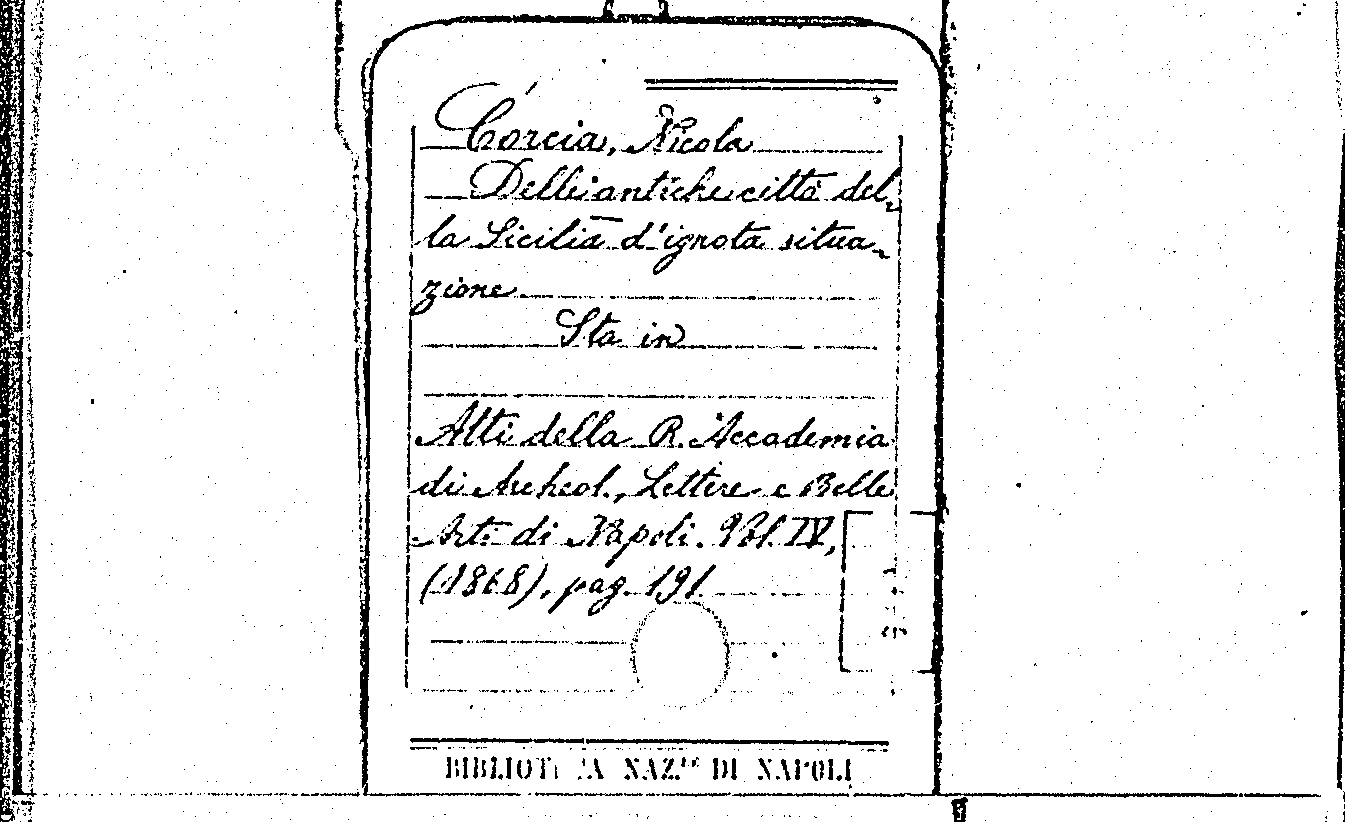 Córcia, Nicola
Delle antiche città del-
la Sicilia d'ignota situa-
zione
Sta in
Atti della R. Accademia
di Archeol., Lettere e Belle
Arti di Napoli. Vol. IV,
(1868), pag. 191
BIBLIOTECA NAZ.LE DI NAPOLI